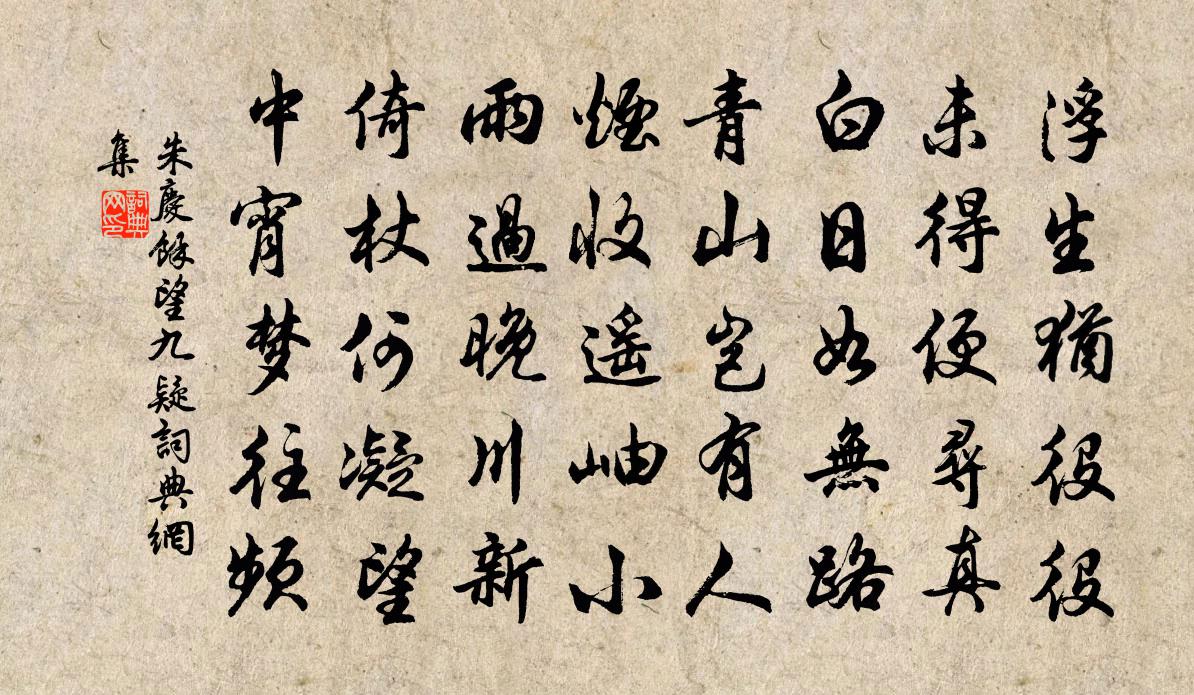 浮生猶役役
未得便尋真
白日如無路
青山豈有人
煙收遥岫小
雨過晚川新
倚杖何凝望
中宵梦往頻
朱慶餘望九疑詞典網
集
詞典
网印